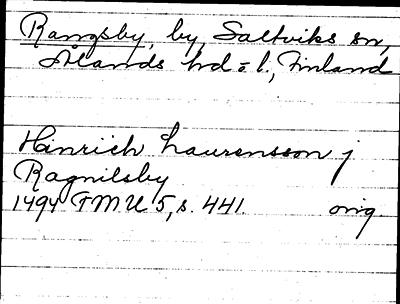 Rangsby, by, Saltviks sn,
Ålands hd o. l., Finland
Hinrich Laurensson j
Ragnilsby
1494 FMU 5, s. 441. orig.